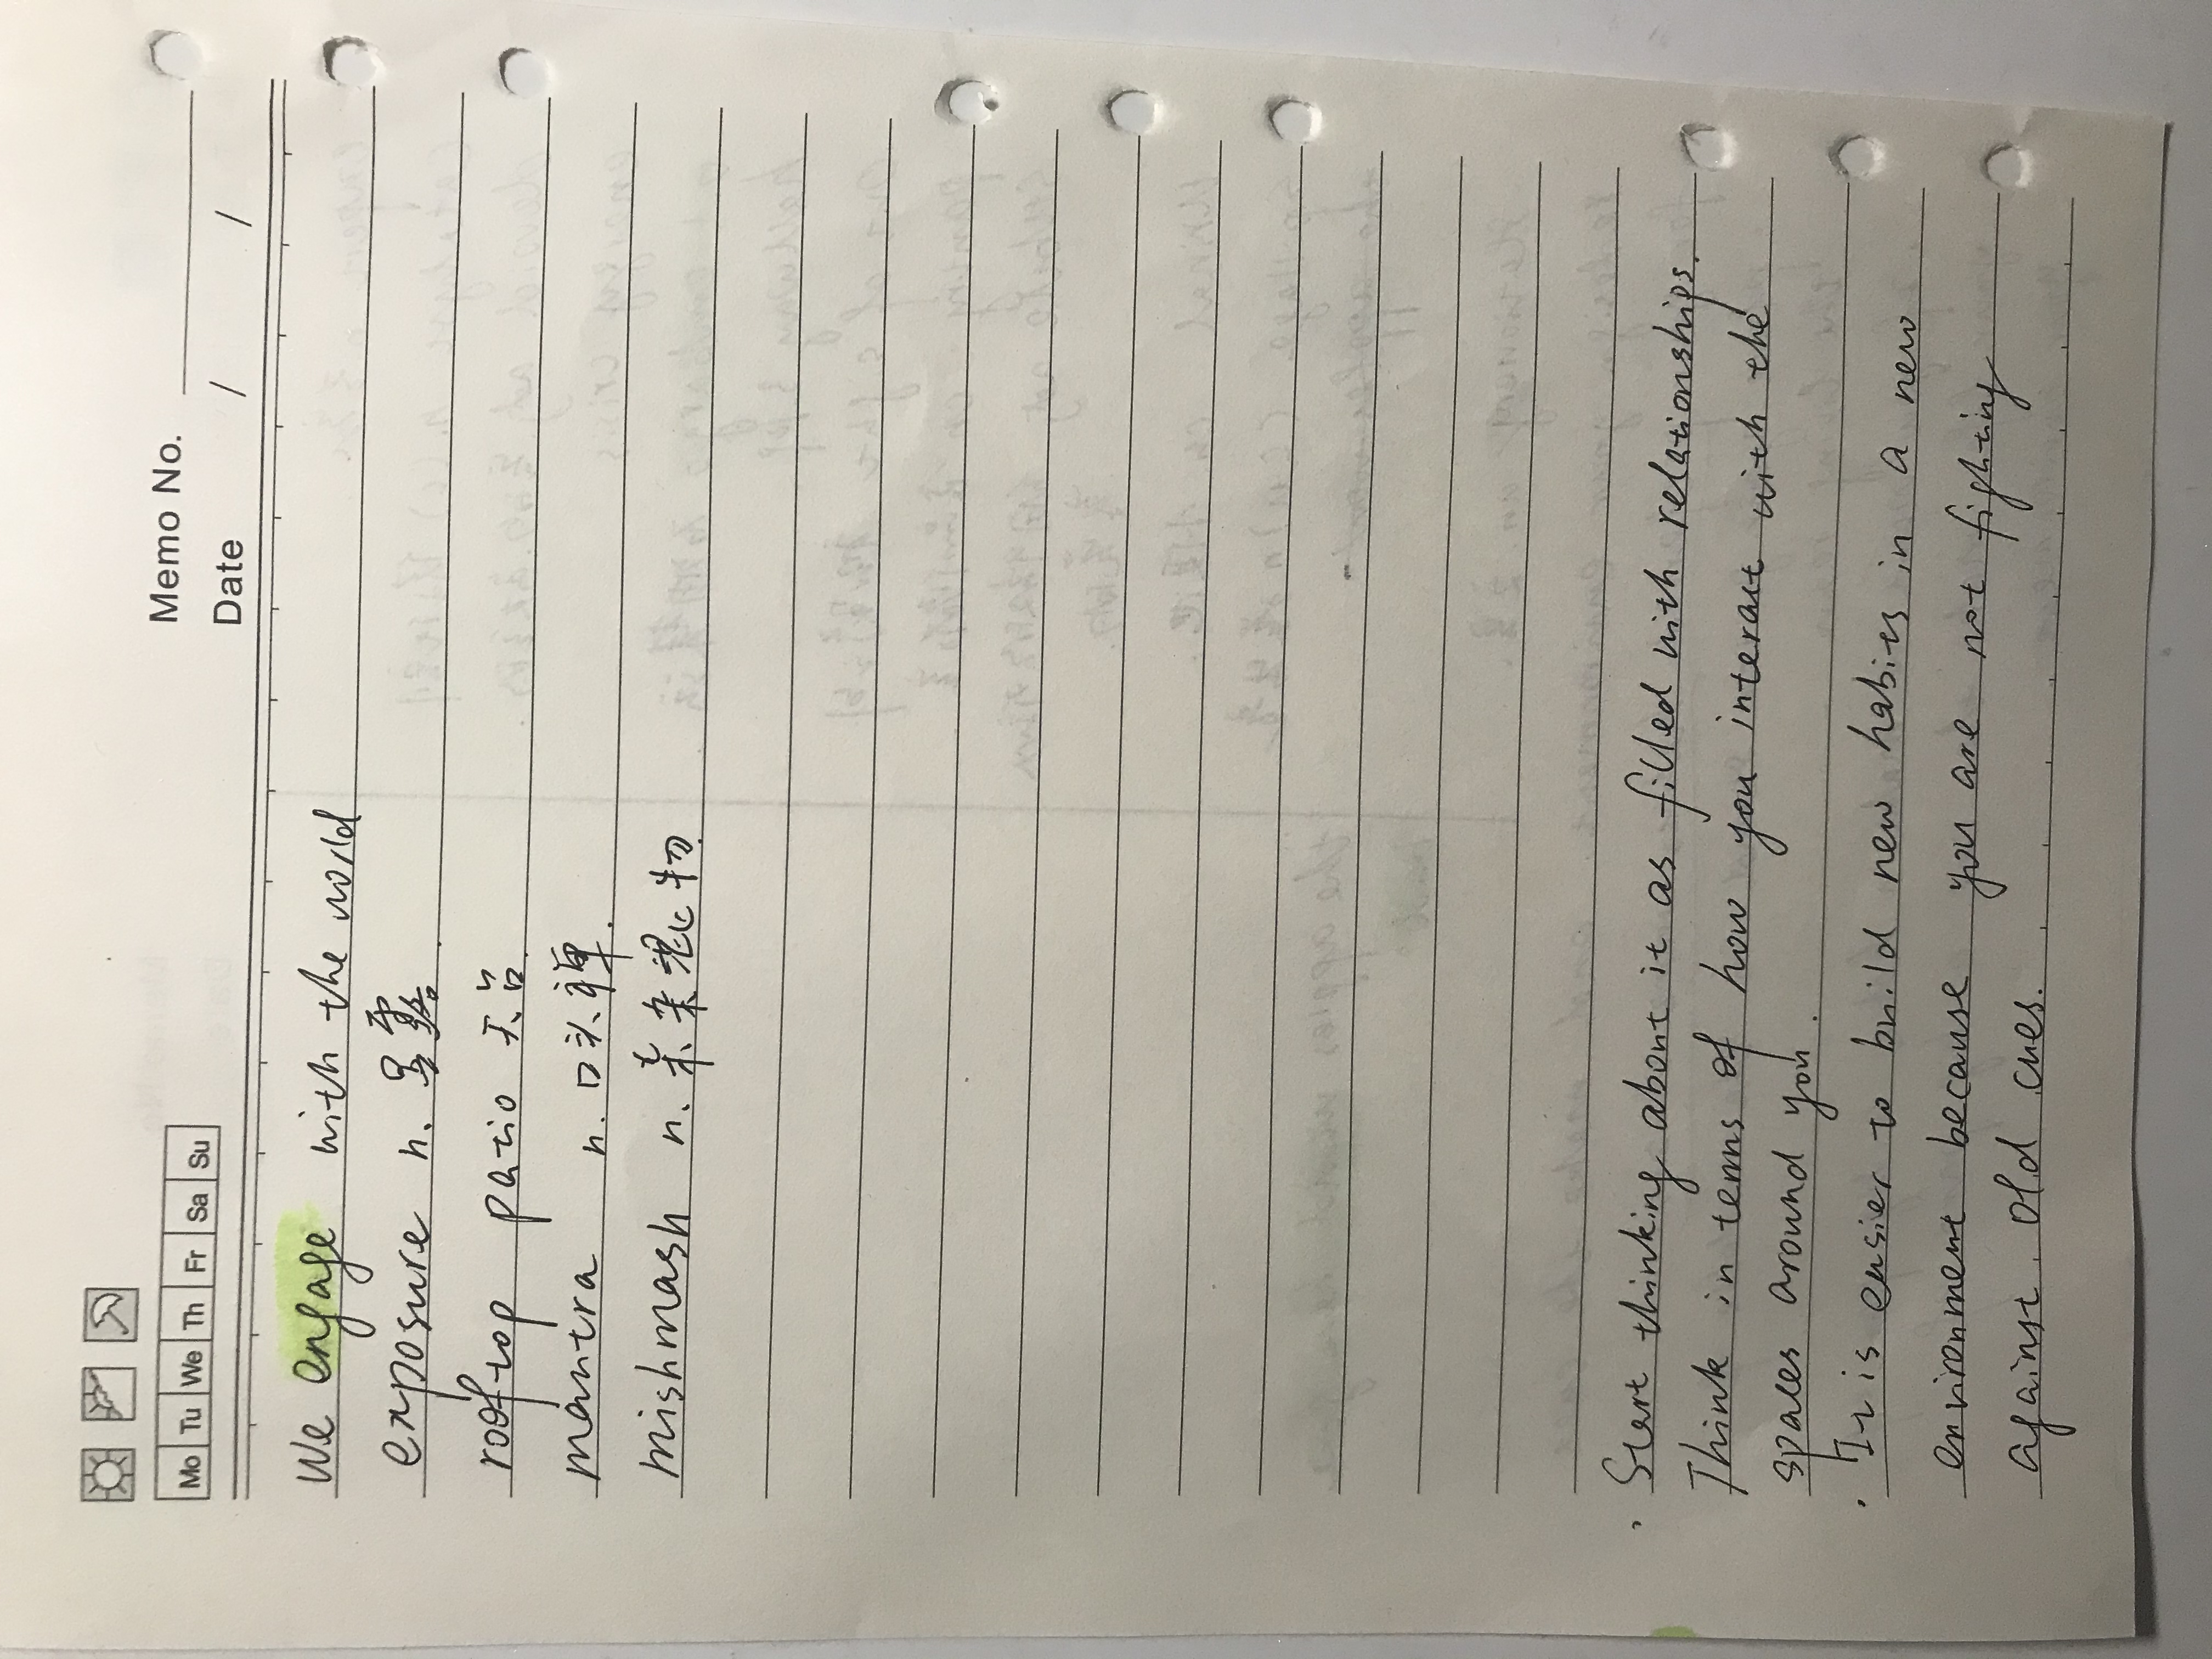 Memo No.
Mo Tu We Th Fr Sa Su
Date / /
We engage with the world
exposure n. 暴露.
rooftop patio 天台.
mantra n. 口头禅.
mishmash n. 杂混物.
· Start thinking about it as filled with relationships.
Think in terms of how you interact with the
spaces around you.
· It is easier to build new habits in a new
environment because you are not fighting
against old cues.